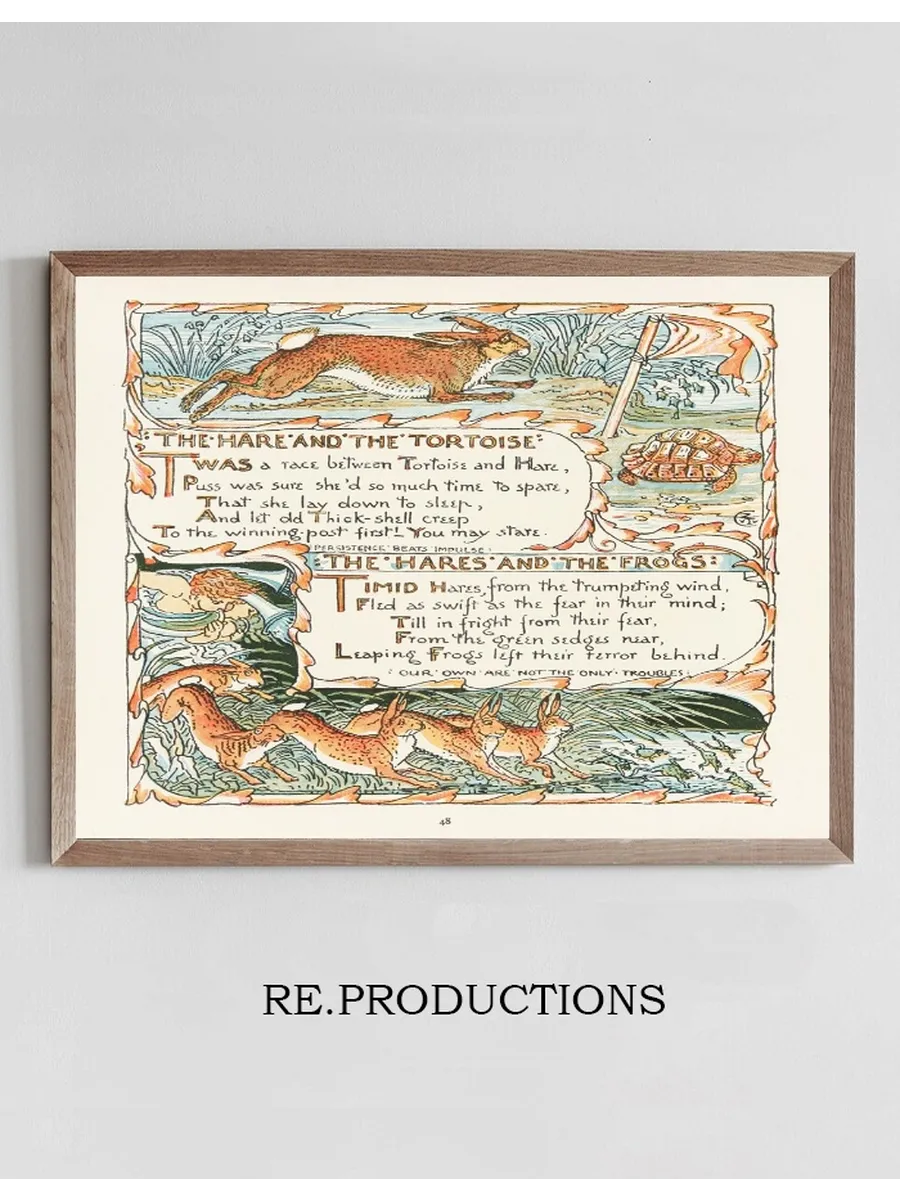 :THE·HARE·AND·THE·TORTOISE:
TWAS a race between Tortoise and Hare,
Puss was sure she'd so much time to spare,
That she lay down to sleep,
And let old Thick-shell creep
To the winning-post first! You may stare.
PERSISTENCE·BEATS·IMPULSE:
:THE·HARES·AND·THE·FROGS:
TIMID Hares, from the trumpeting wind,
Fled as swift as the fear in their mind;
Till in fright from their fear,
From the green sedges near,
Leaping Frogs left their terror behind.
:OUR·OWN·ARE·NOT·THE·ONLY·TROUBLES:
48
RE.PRODUCTIONS